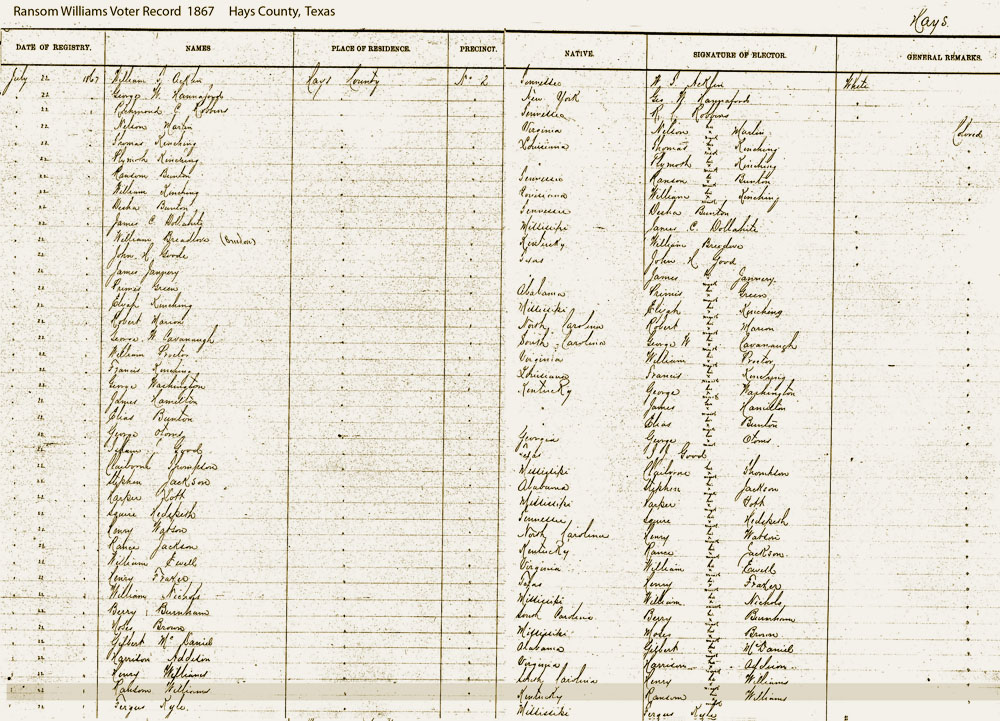 Ransom Williams Voter Record 1867 Hays County, Texas
Hays.
DATE OF REGISTRY. NAMES PLACE OF RESIDENCE. PRECINCT. NATIVE. SIGNATURE OF ELECTOR. GENERAL REMARKS.
July 22 1867 William J. Acklin Hays County No 2 Tennessee W. J. Acklin White
22 George W. Hannaford New York Geo W. Hannaford
22 Richmond C. Robbins Tennessee R. C. Robbins
22 Nelson Martin Virginia Nelson Martin Colored
22 Thomas Kinching Louisiana Thomas Kinching
22 Plymoth Kinching Plymoth Kinching
22 Ranson Bunton Tennessee Ranson Bunton
22 William Kinching Louisiana William Kinching
22 Desha Bunton Tennessee Desha Bunton
22 James C. Dollahite Mississipi James C. Dollahite
22 William Breedlove Kentucky William Breedlove
22 John H. Goode Texas John H Good
22 James Jannery James Jannery
22 Primis Green Alabama Primis Green
22 Elijah Kinching Mississipi Elijah Kinching
22 Robert Marion North Carolina Robert Marion
22 George W. Cavanaugh South Carolina George W Cavanaugh
22 William Proctor Virginia William Proctor
22 Francis Kinching Louisiana Francis Kinching
22 George Washington Kentucky George Washington
22 James Hamilton James Hamilton
22 Elias Bunton Elias Bunton
22 George Georgia George
22 Good Texas Good
22 Claiborne Thompson Mississipi Claiborne Thompson
22 Stephen Jackson Alabama Stephen Jackson
22 Parker Mississipi Parker
22 Squire Hedspeth Tennessee Squire Hedspeth
22 Henry Watson North Carolina Henry Watson
22 Rance Jackson Kentucky Rance Jackson
22 William Ewell Virginia William Ewell
22 Henry Frazer Texas Henry Frazer
22 William Nichols Mississipi William Nichols
22 Berry Burnham South Carolina Berry Burnham
22 Moses Brown Mississipi Moses Brown
22 Gilbert McDaniel Alabama Gilbert McDaniel
22 Harrison Addison Virginia Harrison Addison
22 Henry Williams South Carolina Henry Williams
22 Ransom Williams Kentucky Ransom Williams
22 Fergus Kyle Mississipi Fergus Kyle